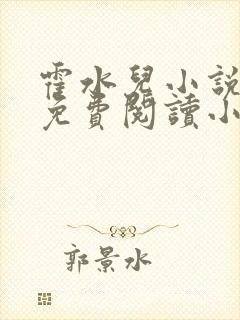 霍水兒小説
免費閱讀小
郭景水